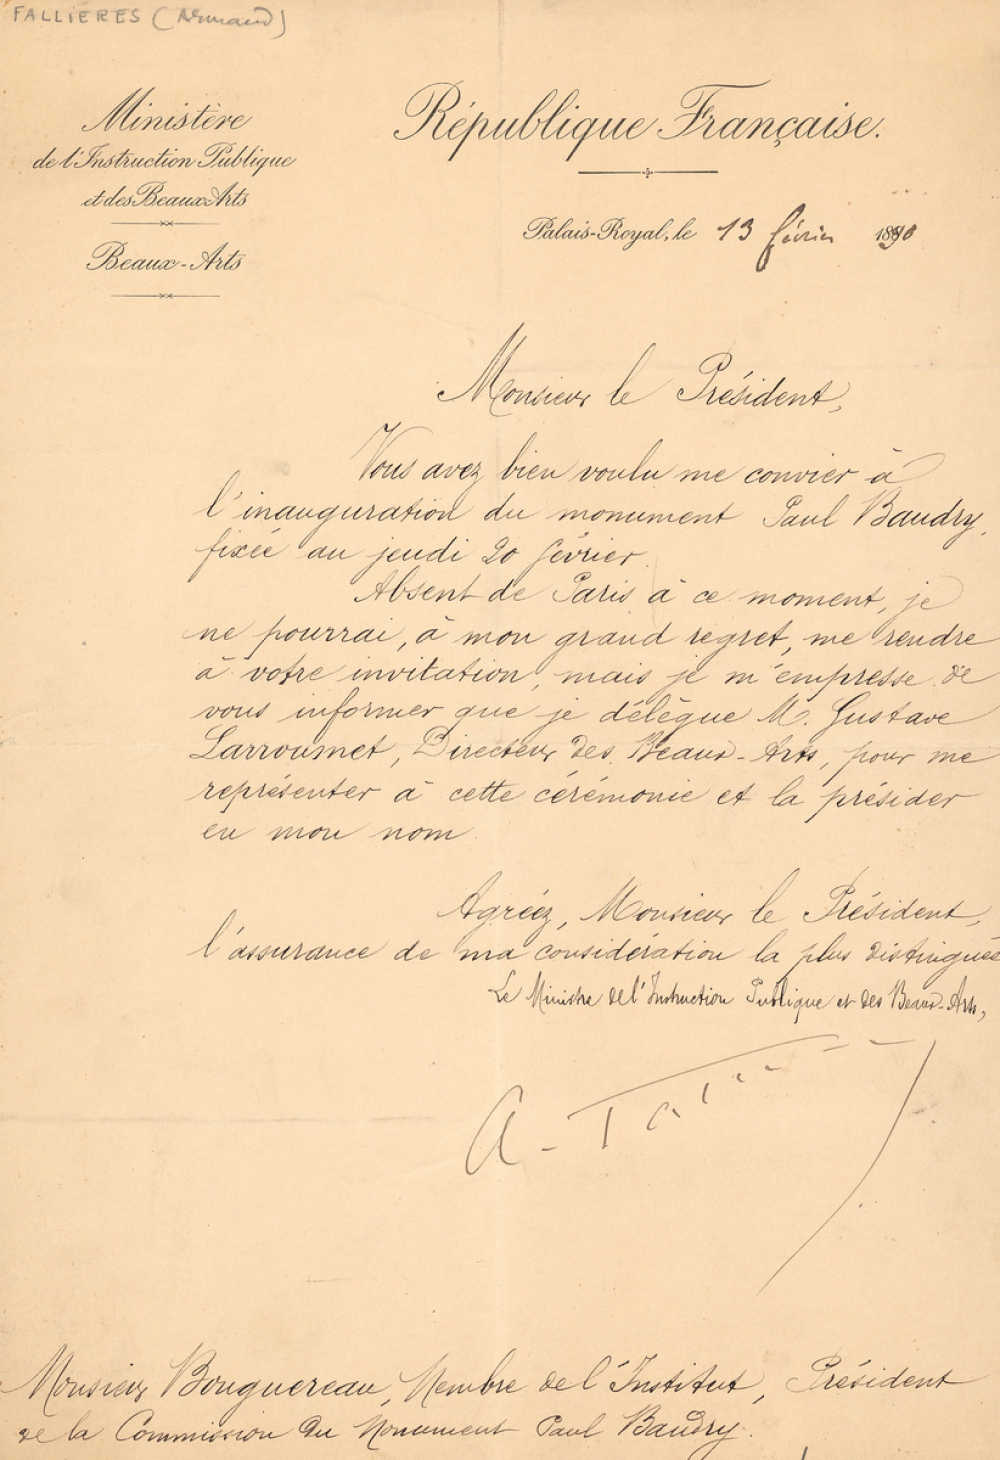 FALLIERES (Armand)
Ministère
de l'Instruction Publique
et des Beaux-Arts
Beaux-Arts
République Française.
Palais-Royal, le 13 février 1890
Monsieur le Président,
Vous avez bien voulu me convier à
l'inauguration du monument Paul Baudry,
fixée au jeudi 20 février.
Absent de Paris à ce moment, je
ne pourrai, à mon grand regret, me rendre
à votre invitation, mais je m'empresse de
vous informer que je délègue M. Gustave
Larroumet, Directeur des Beaux-Arts, pour me
représenter à cette cérémonie et la présider
en mon nom.
Agréez, Monsieur le Président,
l'assurance de ma considération la plus distinguée
Le Ministre de l'Instruction Publique et des Beaux-Arts,
Monsieur Bouguereau, Membre de l'Institut, Président
de la Commission du Monument Paul Baudry.